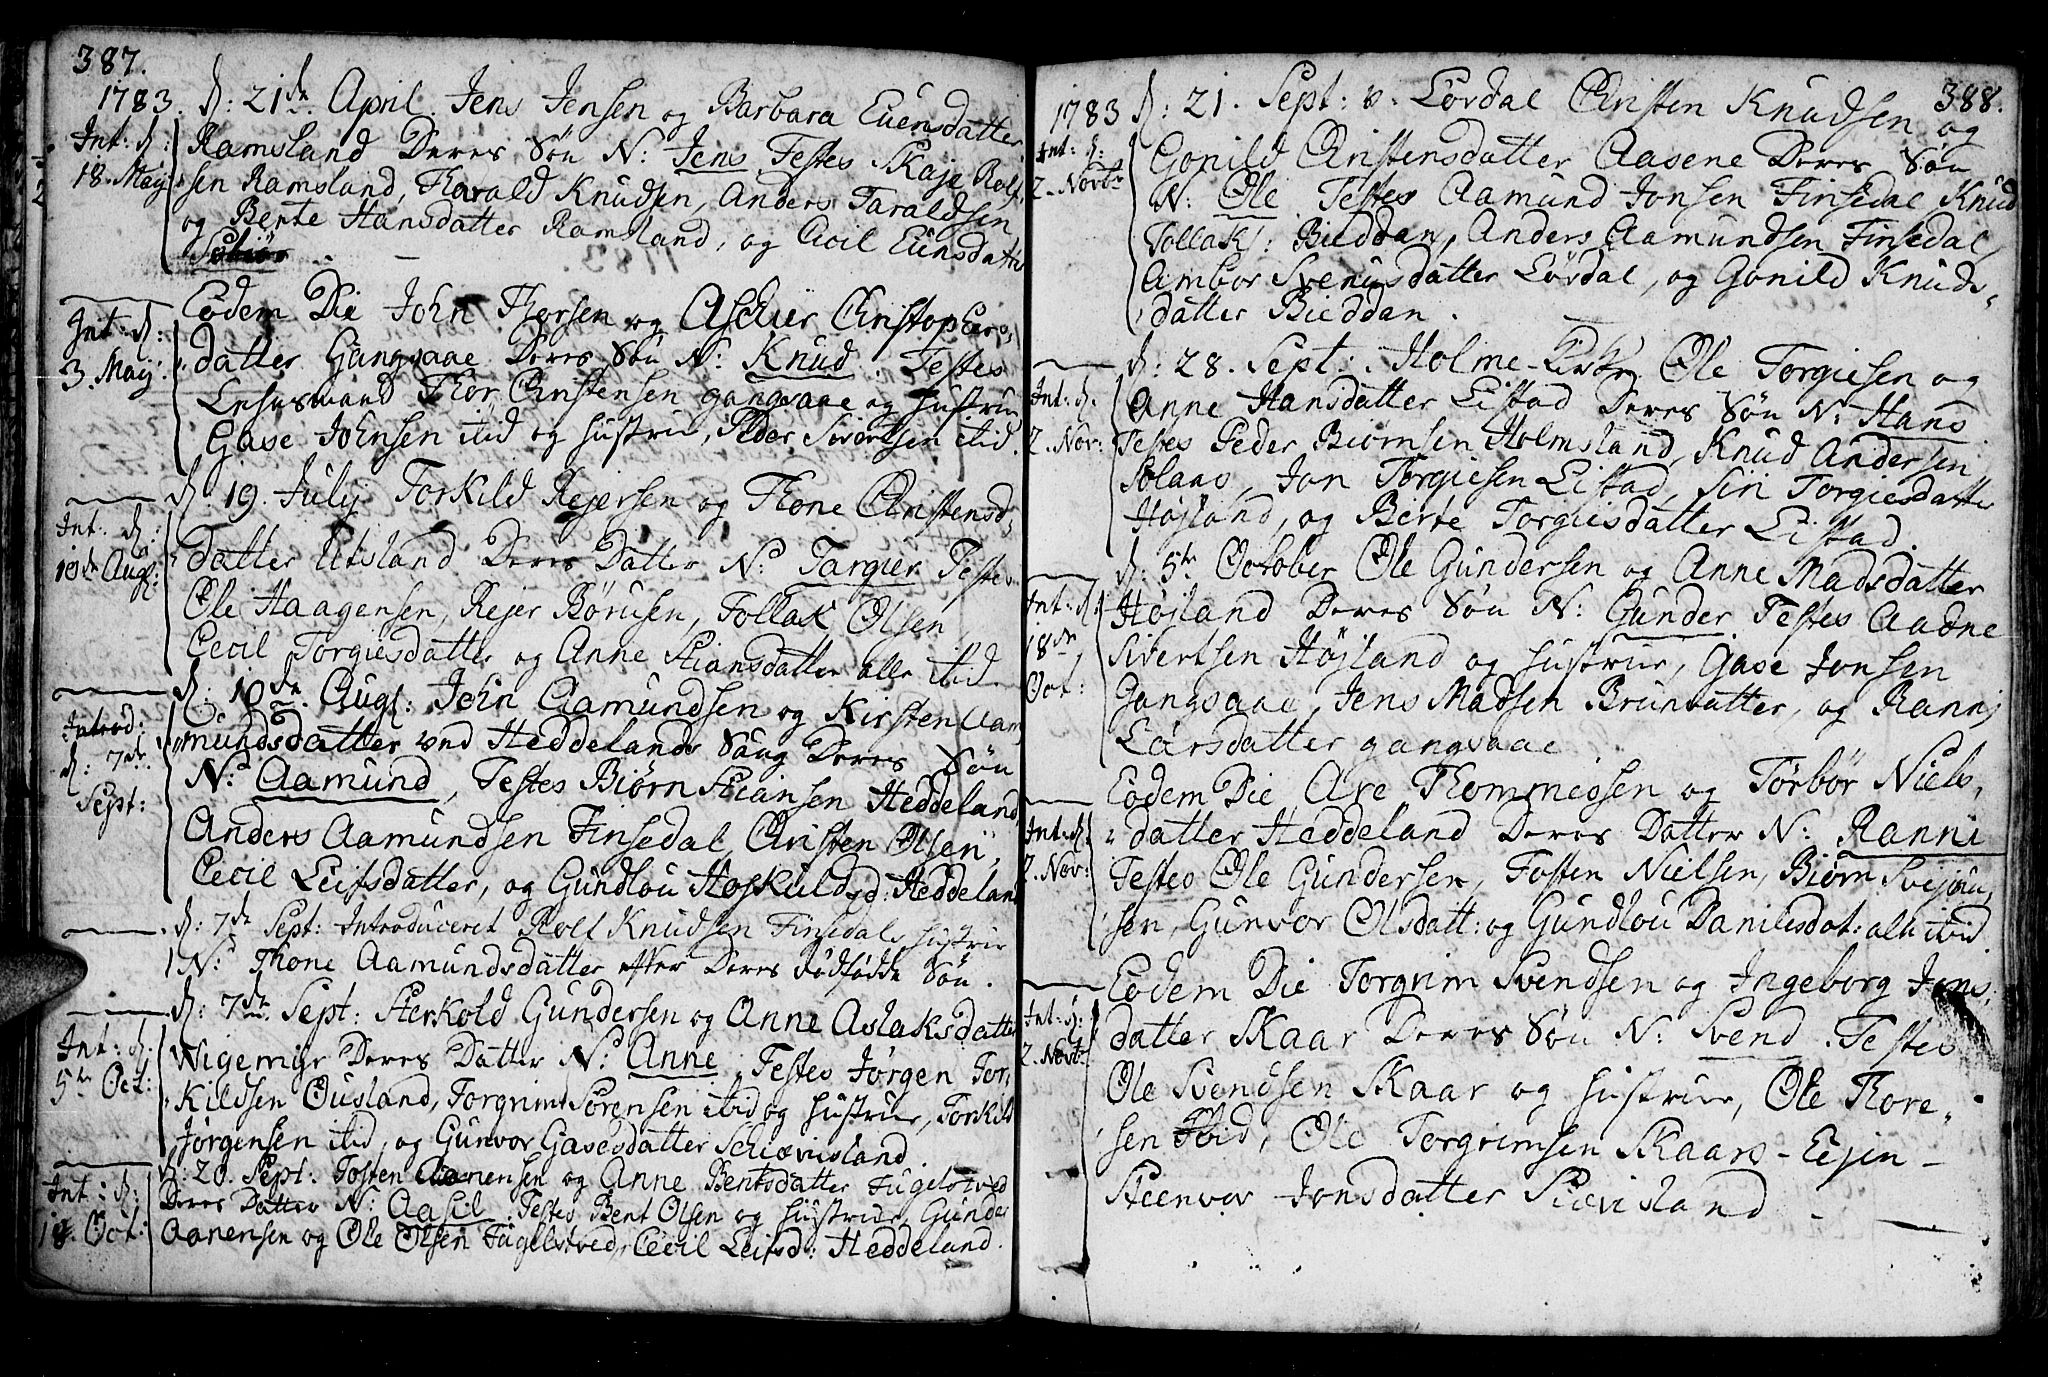 387.
1783. d: 21de April Jens Jensen og Barbara Euensdatter
Int: d:
18. Maij
Ramsland Deres Søn N: Jens Testes Skaje Rolf
sen Ramsland, Harald Knudsen, Anders Taraldsen
og Berte Hansdatter Ramsland, og Cicil Euensdatter
Eodem Die John Thorsen og Christophers
Int: d:
3. Maij
datter Gangvaae Deres Søn N: Knud. Testes
Lehnsmand Thor Christensen gangvaae og hustrue
Gase Johnsen itid og hustrue, Peder Sivertsen itid.
d: 19. Julij Torkild Rejersen og Thone Christensd,
Int. d:
10de Augs:
datter Utsland Deres Datter N: Targier Testes
Ole Haagensen, Rejer Børusen, Tollak Olsen
Cecil Torgiesdatter og Anne Stiansdatter alle itid
d: 10de Augs: John Aamundsen og Kirsten Aam
Introd:
d: 7de
Sept:
mundsdatter ved Heddelands Saug Deres Søn
N: Aamund, Testes Biørn Stiansen Heddeland
Anders Aamundsen Finsedal, Christen Olsen,
Cecil Leifsdatter, og Gundlou Hoskuldsd: Heddeland
d: 7de Sept: Introduceret Rolf Knudsen Finsedals hustrue
N: Thone Aamundsdatter efter Deres dødfødde Søn.
d: 7de Sept: Sterkold Gundersen og Anne Aslaksdatter
Int: d:
5te Oct:
Wigemyr Deres Datter N: Anne. Testes Jørgen Tor,
kildsen Ousland, Torgrim Sørensen itid og hustrue, Torkild
Jørgensen itid, og Gunvor Gasesdatter Schiævisland.
d: 20. Sept: Tosten Aanensen og Anne Bentsdatter Fugelstved
Int: d:
18. Oct:
Deres Datter N: Aasil. Testes Bent Olsen og hustrue, Gunder
Aanensen og Ole Olsen Fugelstved, Cecil Leifsd: Heddeland.
388.
1783 d: 21. Sept: v. Lørdal Christen Knudsen og
Int: d:
2. Novbr
Gonild Christensdatter Aasene Deres Søn
N: Ole Testes Aamund Jonsen Finsedal Knud
Tollaks: Bieddan, Anders Aamundsen Finsedal,
Ambor Svenusdatter Lørdal, og Gonild Knuds-
datter Bieddan.
d: 28. Sept: Holme-Kirke. Ole Torgiesen og
Int: d.
2. Nov:
Anne Hansdatter Leistad Deres Søn N: Hans.
Testes Peder Biørnsen Holmsland, Knud Andersen
Solaas, Jon Torgiesen Leistad, Siri Torgiesdatter
Højland, og Berte Torgiesdatter Leistad.
d: 5te October Ole Gundersen og Anne Madsdatter
Int: d:
18de
Oct:
Højland Deres Søn N: Gunder Testes Aadne
Sivertsen Højland og hustrue, Gase Jonsen
Gangvaae, Jens Madsen Brunvatter, og Ranni
Larsdatter gangvaae
Eodem Die Are Thommesen og Tørbør Niels,
Int: d:
2. Nov:
datter Heddeland Deres Datter N: Ranni
Testes Ole Gundersen, Tosten Nielsen, Biørn Svejnu,
sen, Gunvor Olsdatt: og Gundlou Danilsdat: alle itid.
Eodem Die Torgrim Svendsen og Ingeborg Jons,
Int: d:
2. Novbr
datter Skaar Deres Søn N: Svend. Testes
Ole Svendsen Skaar og hustrue, Ole Thore,
sen Ibid, Ole Torgrimsen Skaars-Eijen-
Steenvor Jonsdatter Skiævisland.